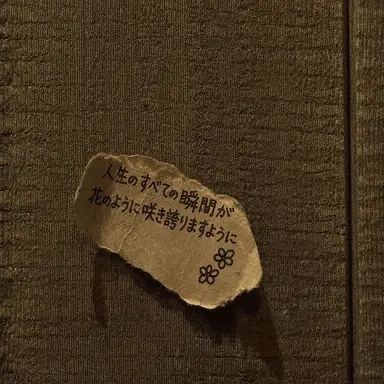 人生のすべての瞬間が
花のように咲き誇りますように